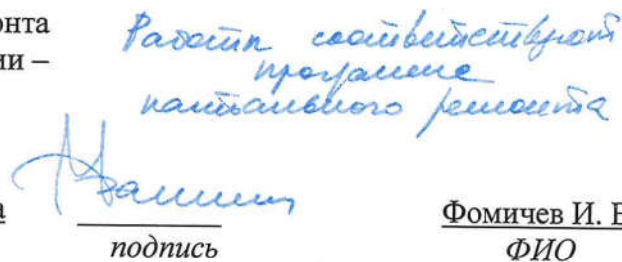 онта
ии –
Работы соответствуют
программе
капитального ремонта
а
Фомичев И. В
подпись
ФИО